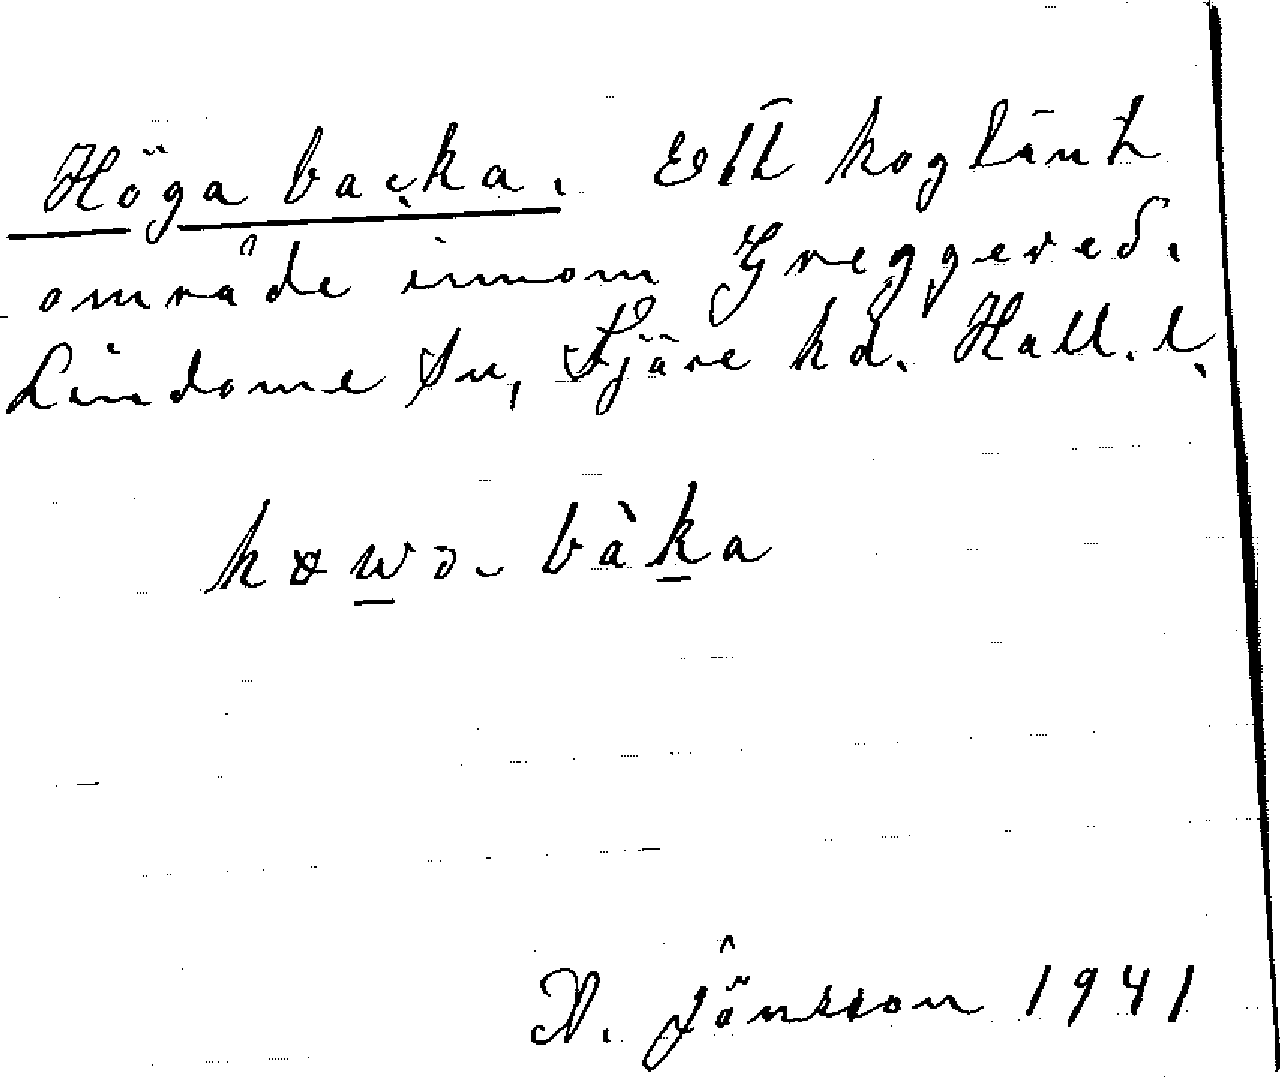 Höga backa. Ett höglänt
område innom Greggered.
Lindome sn, Fjäre hd. Hall. l.
bàka
Jönsson 1941